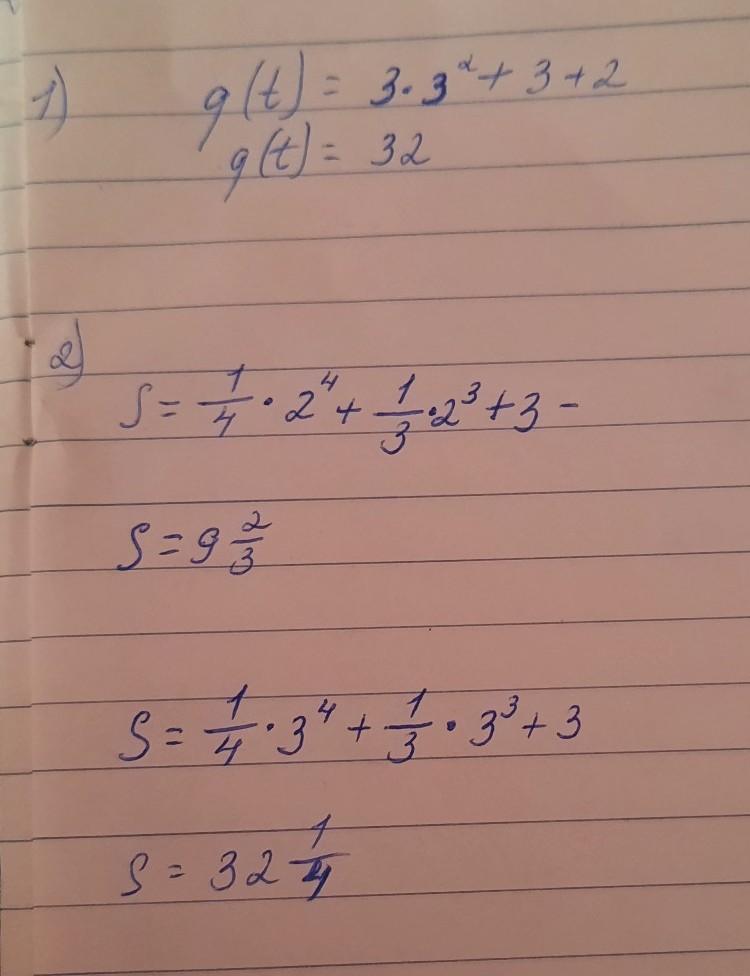 1) g(t) = 3·3² + 3 + 2
g(t) = 32
2)
S = 1/4 · 2⁴ + 1/3 · 2³ + 3 -
S = 9 2/3
S = 1/4 · 3⁴ + 1/3 · 3³ + 3
S = 32 1/4